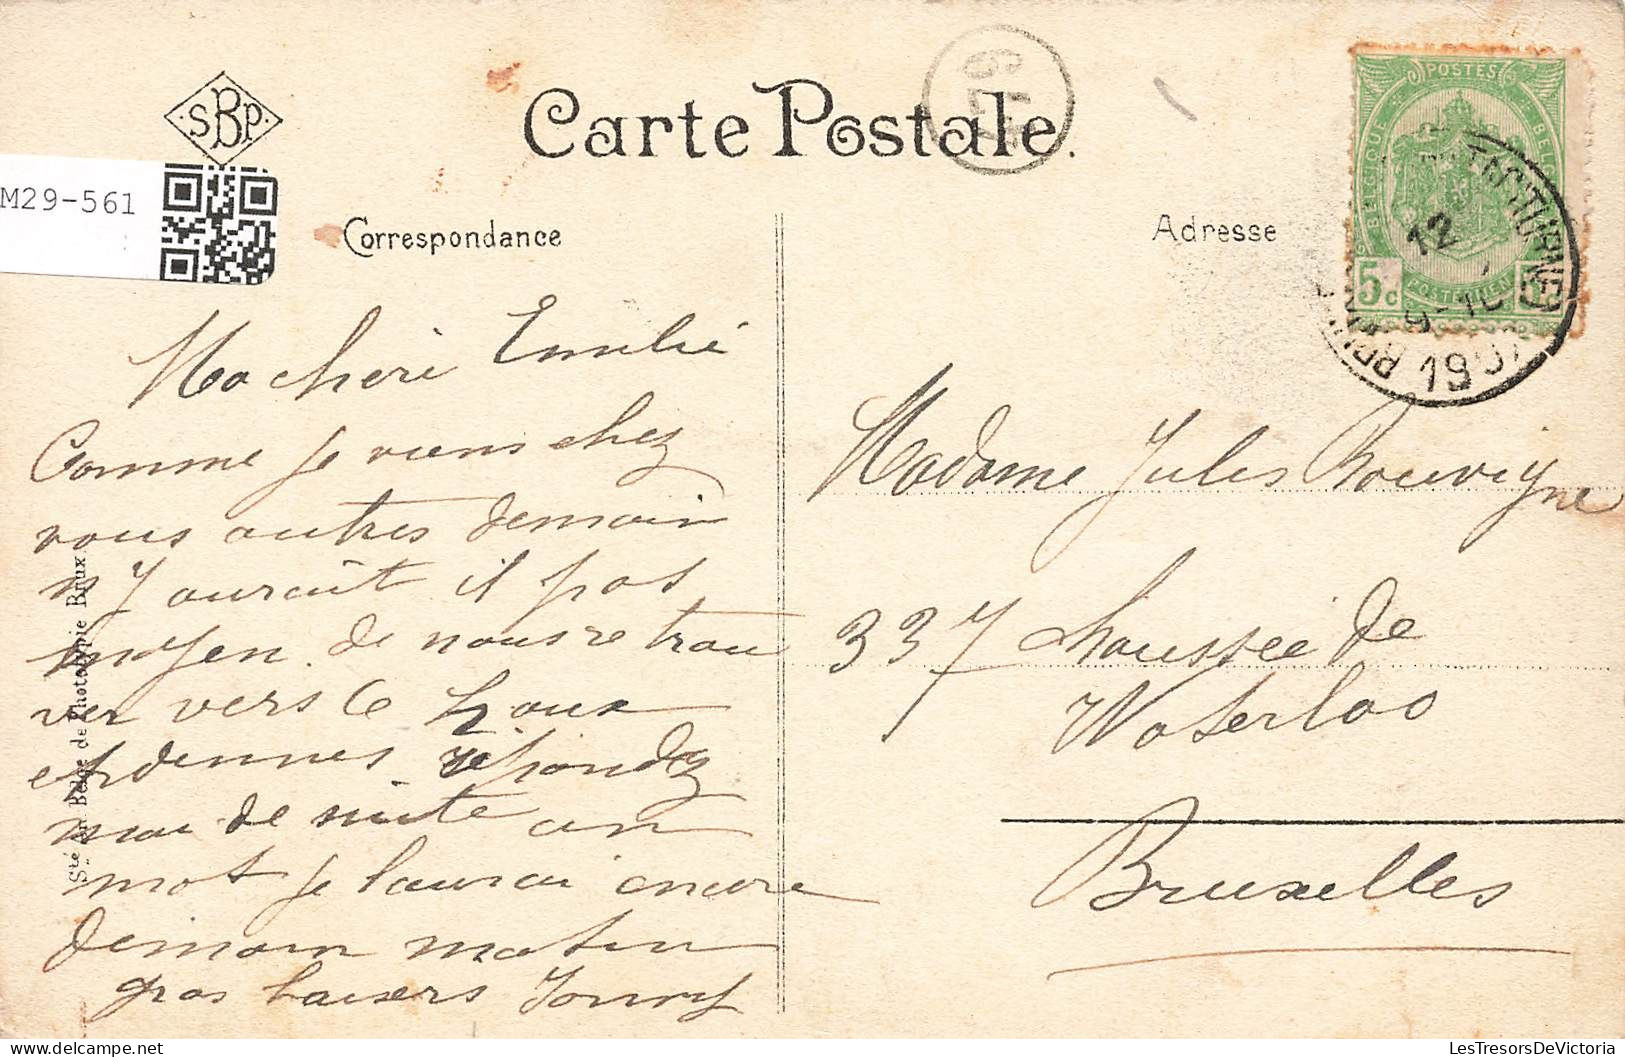 SBP
Carte Postale.
M29-561
Correspondance
Adresse
POSTES
BELGIQUE BELGIE
5c 5c
POSTERIJEN
TACITURNE
12
9-10
1907
Ma cheri Emilie
Comme je viens chez
vous autres demain
n'y aurait il pas
moyen de nous retrou
ver vers 6 h aux
ardennes répondez
moi de suite un
mot je l'aurai encore
demain matin
gros baisers
Madame Jules Bouvigne
337 Chaussée de
Waterloo
Bruxelles
Sté An Belge de Phototypie Brux.
LesTresorsDeVictoria